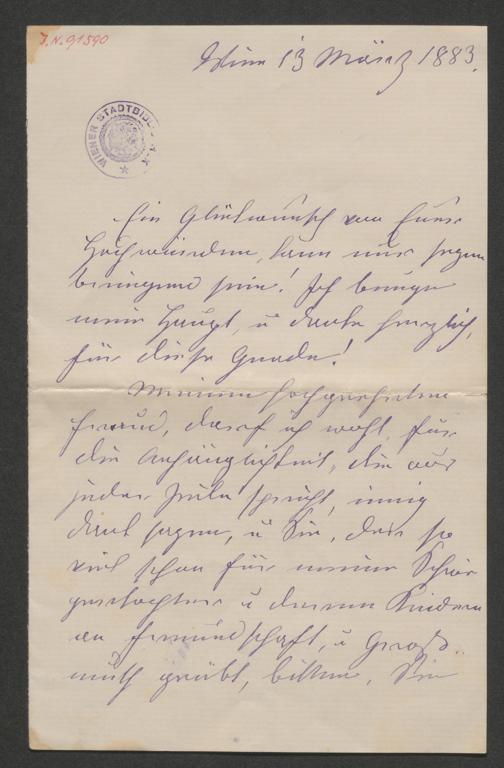 J.N. 91590
Wien 13 März 1883.
WIENER STADTBIBL
Ein Glückwunsch von Euer
Hochwürden, kann nur segen
bringend sein! Ich beuge
mein Haupt, u danke herzlich,
für diese Gnade!
Meinem hochverehrten
Freund, darf ich wohl, für
die Anhänglichkeit, die aus
jeder Zeile spricht, innig
Dank sagen, u Sie, der so
viel schon für meine Schwie
gertochter u deren Kindern
an Freundschaft, u Groß
muth geübt, bitten, Sie